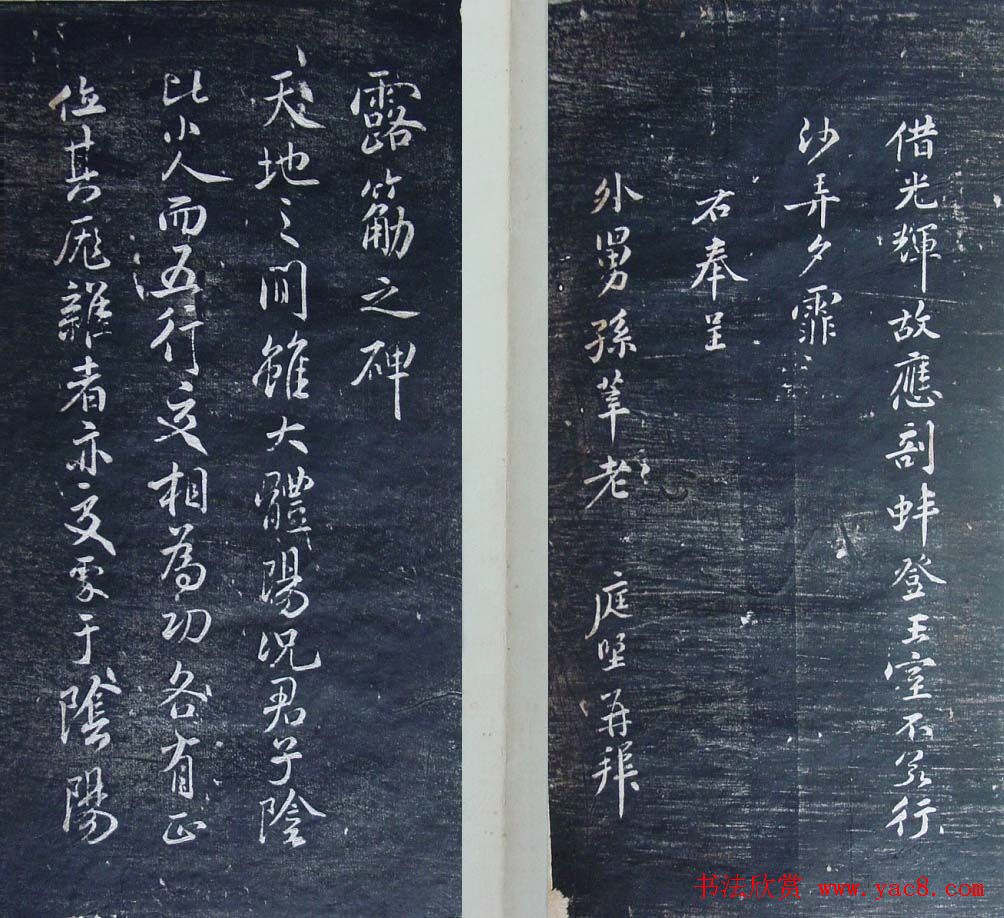 借光輝故應剖蚌登王室不若行
沙弄夕霏
右奉呈
外舅孫莘老 庭堅再拜
露筋之碑
天地之間雖大體陽況君子陰
比小人而五行交相為功各有正
位其厖雜者亦交處于陰陽
书法欣赏 www.yac8.com